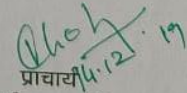 14.12.19
प्राचार्य